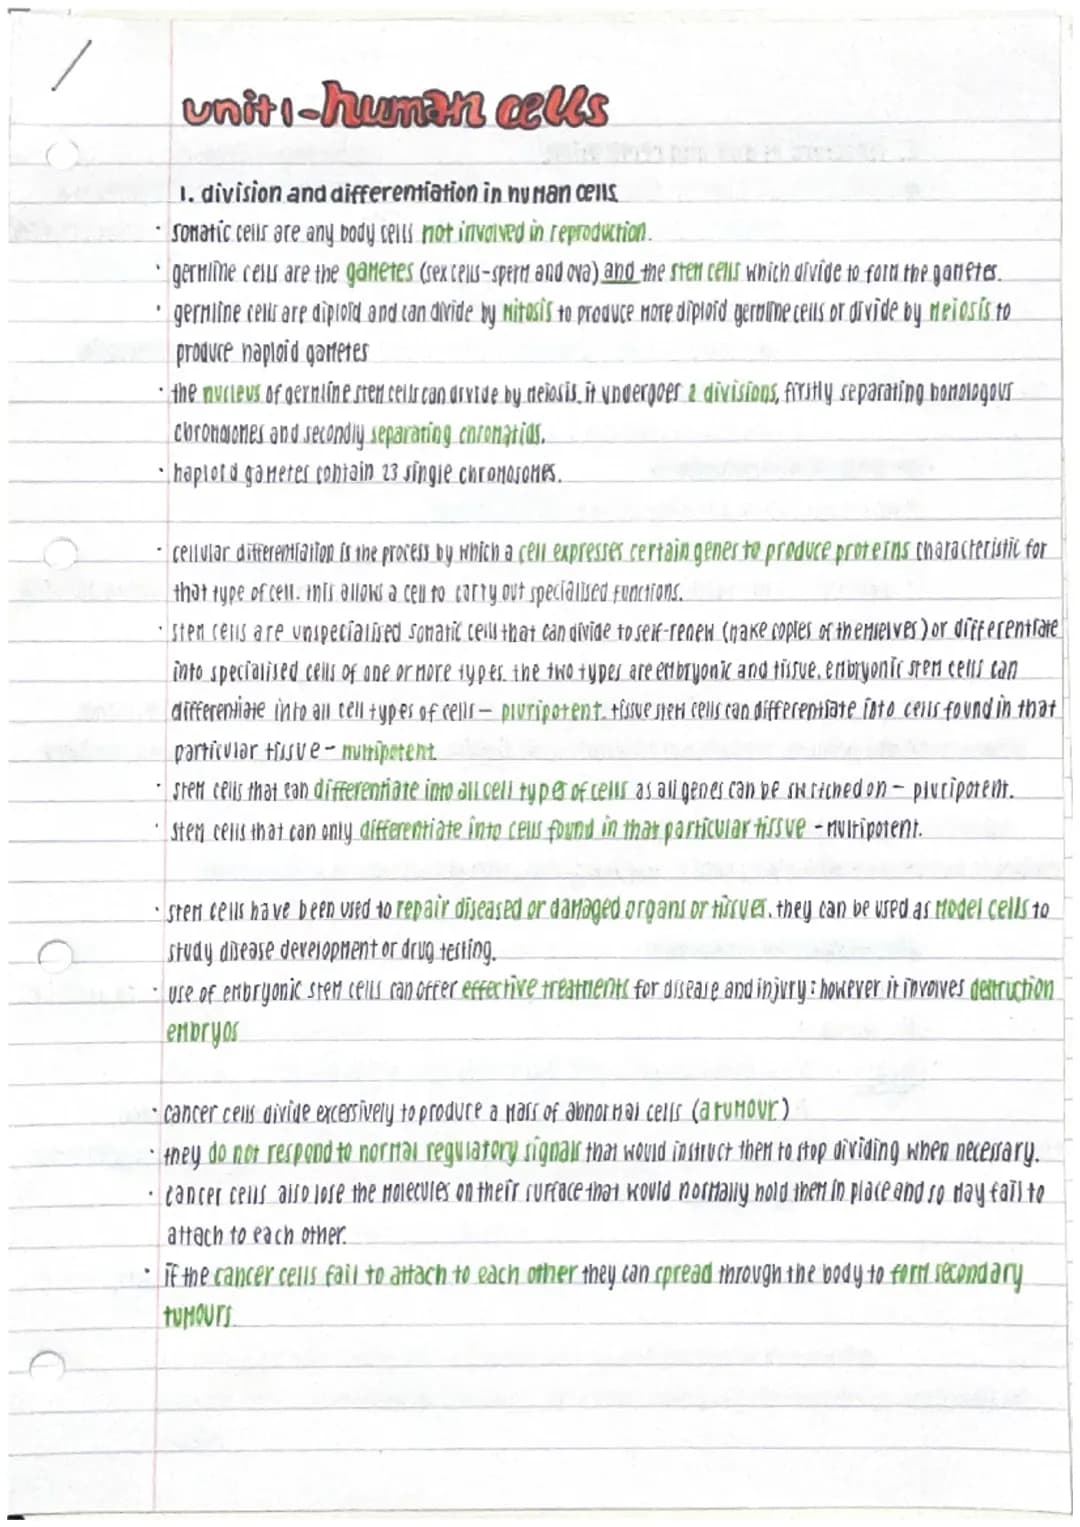 unit 1 - human cells
1. division and differentiation in human cells
· somatic cells are any body cells not involved in reproduction.
· germline cells are the gametes (sex cells - sperm and ova) and the stem cells which divide to form the gametes.
· germline cells are diploid and can divide by mitosis to produce more diploid germline cells or divide by meiosis to
produce haploid gametes
· the nucleus of germline stem cells can divide by meiosis, it undergoes 2 divisions, firstly separating homologous
chromosomes and secondly separating chromatids.
· haploid gametes contain 23 single chromosomes.
· cellular differentiation is the process by which a cell expresses certain genes to produce proteins characteristic for
that type of cell. this allows a cell to carry out specialised functions.
· stem cells are unspecialised somatic cells that can divide to self-renew (make copies of themselves) or differentiate
into specialised cells of one or more types. the two types are embryonic and tissue. embryonic stem cells can
differentiate into all cell types of cells - pluripotent. tissue stem cells can differentiate into cells found in that
particular tissue - multipotent.
· stem cells that can differentiate into all cell types of cells as all genes can be switched on - pluripotent.
· stem cells that can only differentiate into cells found in that particular tissue - multipotent.
· stem cells have been used to repair diseased or damaged organs or tissues. they can be used as model cells to
study disease development or drug testing.
· use of embryonic stem cells can offer effective treatments for disease and injury: however it involves destruction
embryos
· cancer cells divide excessively to produce a mass of abnormal cells (a tumour)
· they do not respond to normal regulatory signals that would instruct them to stop dividing when necessary.
· cancer cells also lose the molecules on their surface that would normally hold them in place and so may fail to
attach to each other.
· if the cancer cells fail to attach to each other they can spread through the body to form secondary
tumours